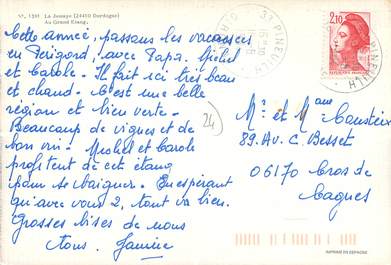 N° 1301 La Jemaye (24410 Dordogne)
Au Grand Etang.
Cette année, passons les vacances
en Périgord, avec Papa. Michel
et Carole. Il fait ici très beau
et chaud. C'est une belle
région et bien verte.
Beaucoup de vignes et de
bon vin. Michel et Carole
profitent de cet étang
pour se baigner. En espérant
qu'avec vous 2, tout va bien.
Grosses bises de nous
Tous. Janine
24
33 PINEUILH
2,10
M. et Mme
39. Av. C. Besset
06170 Cros de
Cagnes
IMPRIMÉ EN ESPAGNE